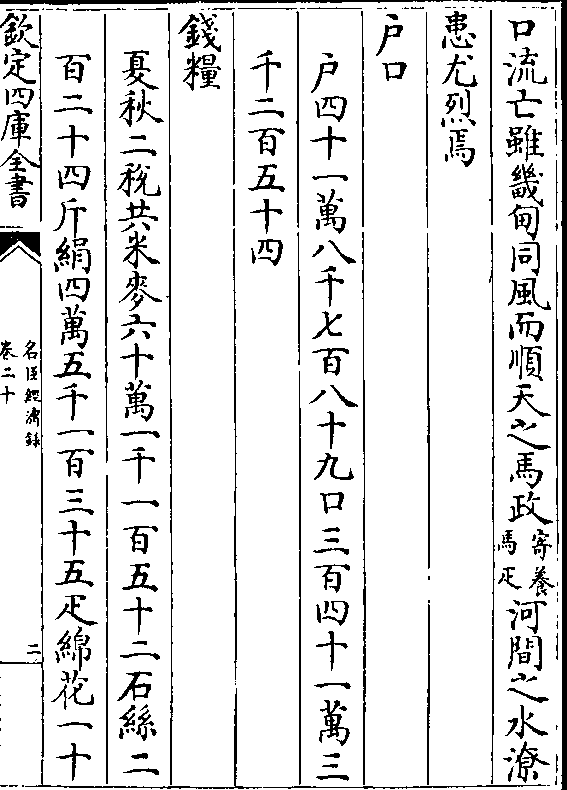 口流亡雖畿甸同風而順天之馬政寄養馬疋河間之水潦
患尤烈焉
户口
户四十一萬八千七百八十九口三百四十一萬三
千二百五十四
錢糧
夏秋二稅共米麥六十萬一千一百五十二石絲二
百二十四斤絹四萬五千一百三十五疋綿花一十
欽定四庫全書
名臣經濟録
卷二十
二